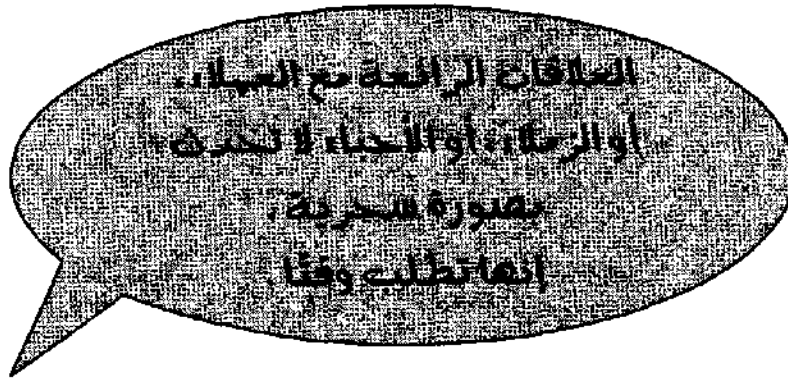 العلاقات الرائعة مع العملاء،
أو الزملاء، أو الأحباء لا تحدث
بصورة سحرية،
إنها تطلب وقتًا.